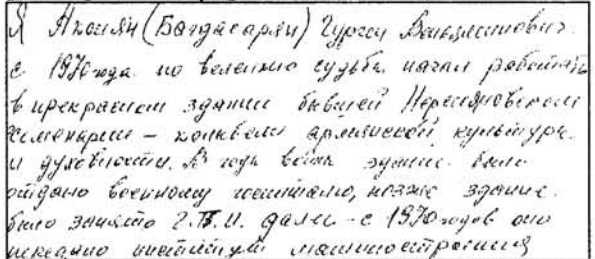 Я Акопян (Багдасарян) Гурген Вениаминович
с 1970 года по велению судьбы начал работать
в прекрасном здании бывшей Нерсисяновской
семенарии – колыбели армянской культуры
и духовности. В годы войны здание было
отдано военному госпиталю, позже здание
было занято г.П.И. далее – с 1970 годов оно
передано институту машиностроения